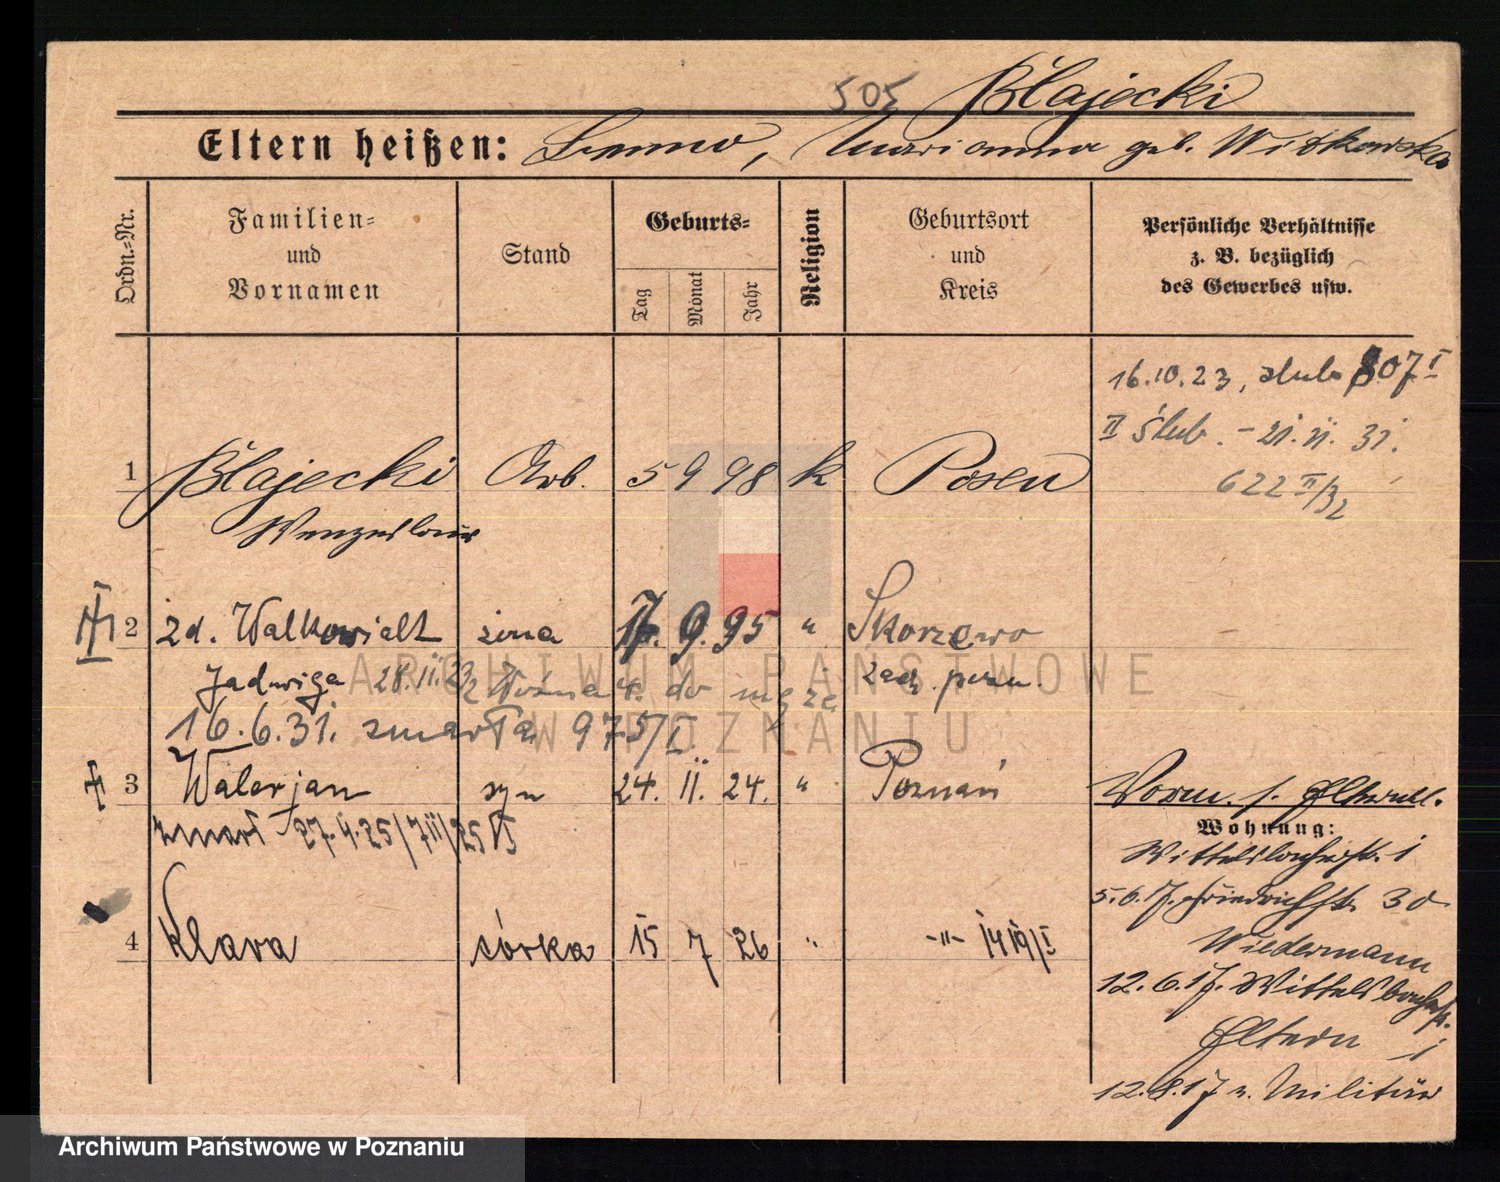 505 Błajecki
Eltern heißen: Benno, Marianna geb. Witkowska
Ordn.=Nr.
Familien=
und
Vornamen
Stand
Geburts=
Tag
Monat
Jahr
Religion
Geburtsort
und
Kreis
Persönliche Verhältnisse
z. B. bezüglich
des Gewerbes usw.
16.10.23, ślub 807 I
II Ślub. - 21. 11. 31.
622 II/32
1 Błajecki Arb. 5 9 98 k Posen
Wenzeslaus
2 zd. Walkowialt żona 17. 9. 95 " Skorzewo
Jadwiga 28. 11. 23 Woźna 4. do męża zach. pozn.
16.6.31. zmarła 975/I.
3 Walerjan syn 24. 11. 24. " Poznań
zmarł 27.4.25/7II/25
Vorm. s. Eltern
Wohnung:
Wittelsbacherstr. 1
5.6.17. Friedrichstr. 30
Wiedermann
4 Klara córka 15 7 26 " -"- 1419/I
12.6.17. Wittelsbacherstr. 1
Eltern
12.8.17 z. Militär
ARCHIWUM PAŃSTWOWE
W POZNANIU
Archiwum Państwowe w Poznaniu